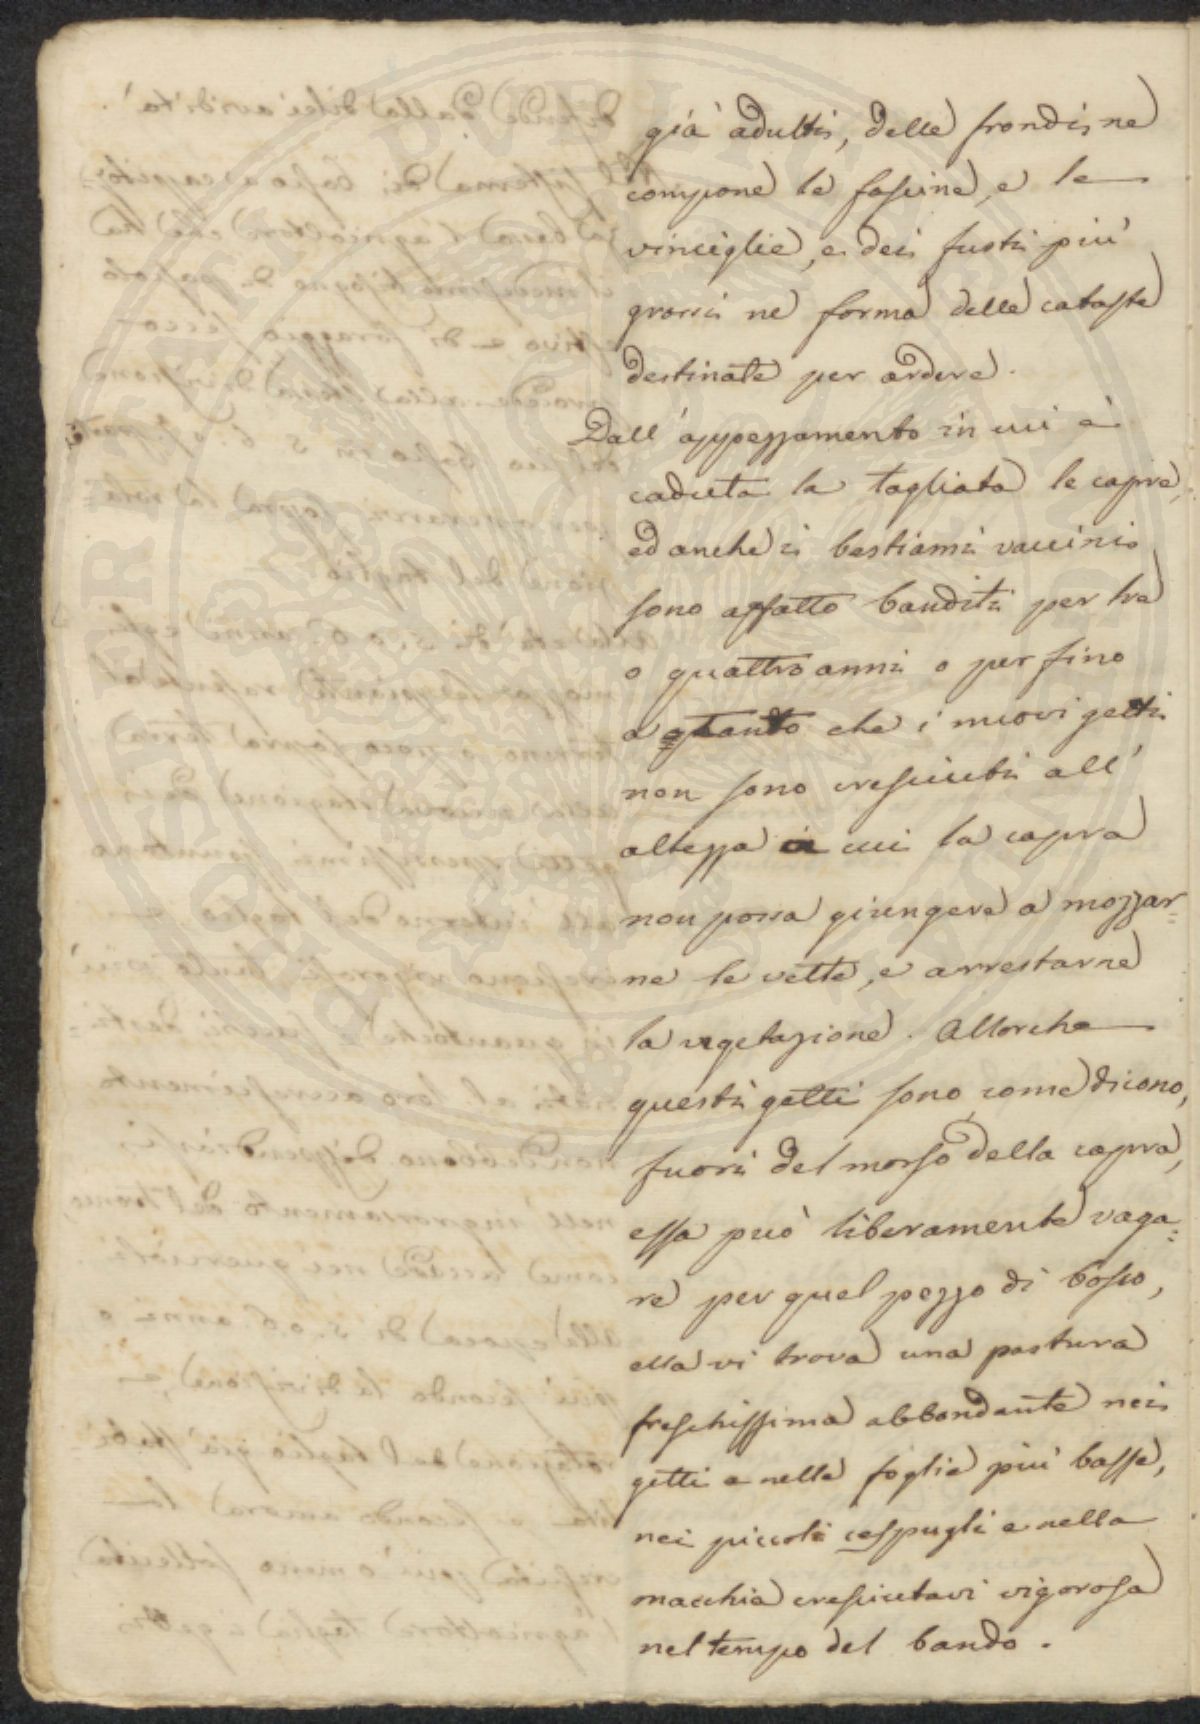 già adulti, delle frondi ne
compone le fascine, e le
vinciglie, e dei fusti più
grossi ne forma delle cataste
destinate per ardere.
Dall'appezzamento in cui è
caduta la tagliata le capre,
ed anche i bestiami vaccini
sono affatto banditi per tre
o quattro anni o per fino
a quanto che i nuovi getti
non sono cresciuti all'
altezza a cui la capra
non possa giungere a mozzar=
ne le vette, e arrestarne
la vegetazione. Allorche
questi getti sono, come dicono,
fuori del morso della capra,
essa può liberamente vaga=
re per quel pezzo di bosco,
ella vi trova una pastura
freschissima abbondante nei
getti e nelle foglie più basse,
nei piccoli cespugli e nella
macchia cresciutavi vigorosa
nel tempo del bando.
PROSPERITATI PVBLICAE